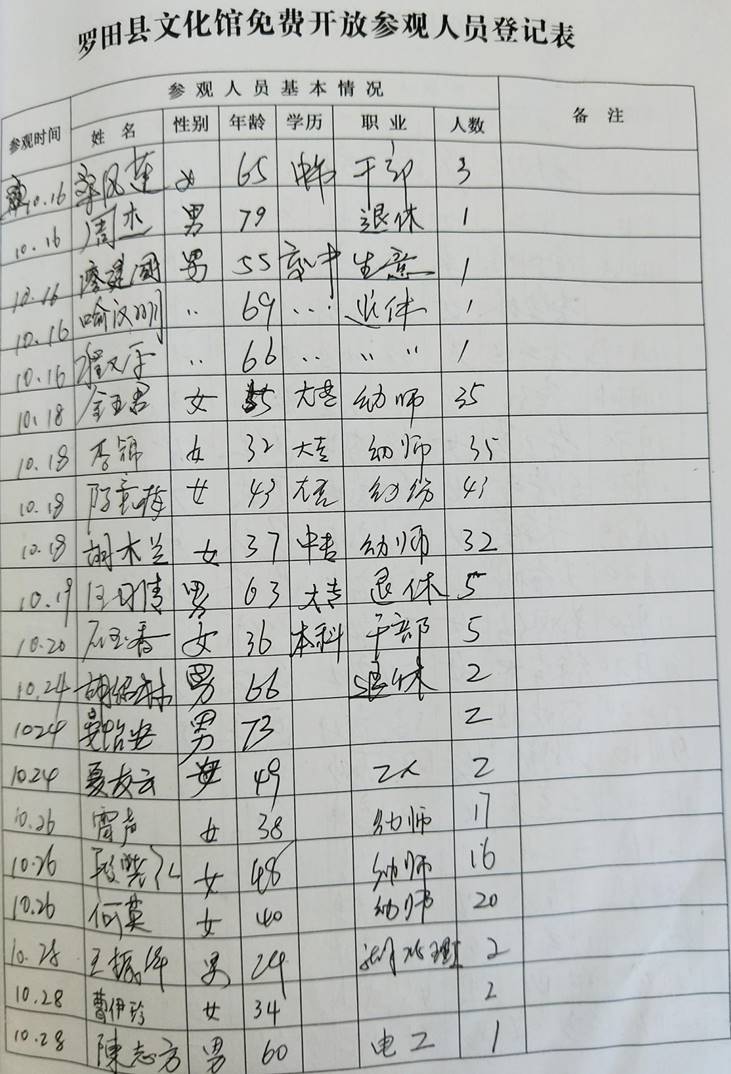 罗田县文化馆免费开放参观人员登记表
参观人员基本情况
参观时间 姓名 性别 年龄 学历 职业 人数 备注
10.16 女 65 干部 3
10.16 周杰 男 79 退休 1
10.16 廖建国 男 55 高中 生意 1
10.16 喻汉明 〃 69 〃 退休 1
10.16 〃 66 〃 〃 〃 1
10.18 金玉君 女 35 大专 幼师 35
10.18 李锦 女 32 大专 幼师 35
10.18 女 43 大专 幼师 43
10.18 胡木兰 女 37 中专 幼师 32
10.19 男 63 大专 退休 5
10.20 石玉香 女 36 本科 干部 5
10.24 男 66 退休 2
1024 男 73 2
10.24 夏友云 女 49 工人 2
10.26 雷声 女 38 幼师 17
10.26 女 48 幼师 16
10.26 何英 女 40 幼师 20
10.28 王振 男 24 2
10.28 曹伊珍 女 34 2
10.28 陳志方 男 60 电工 1